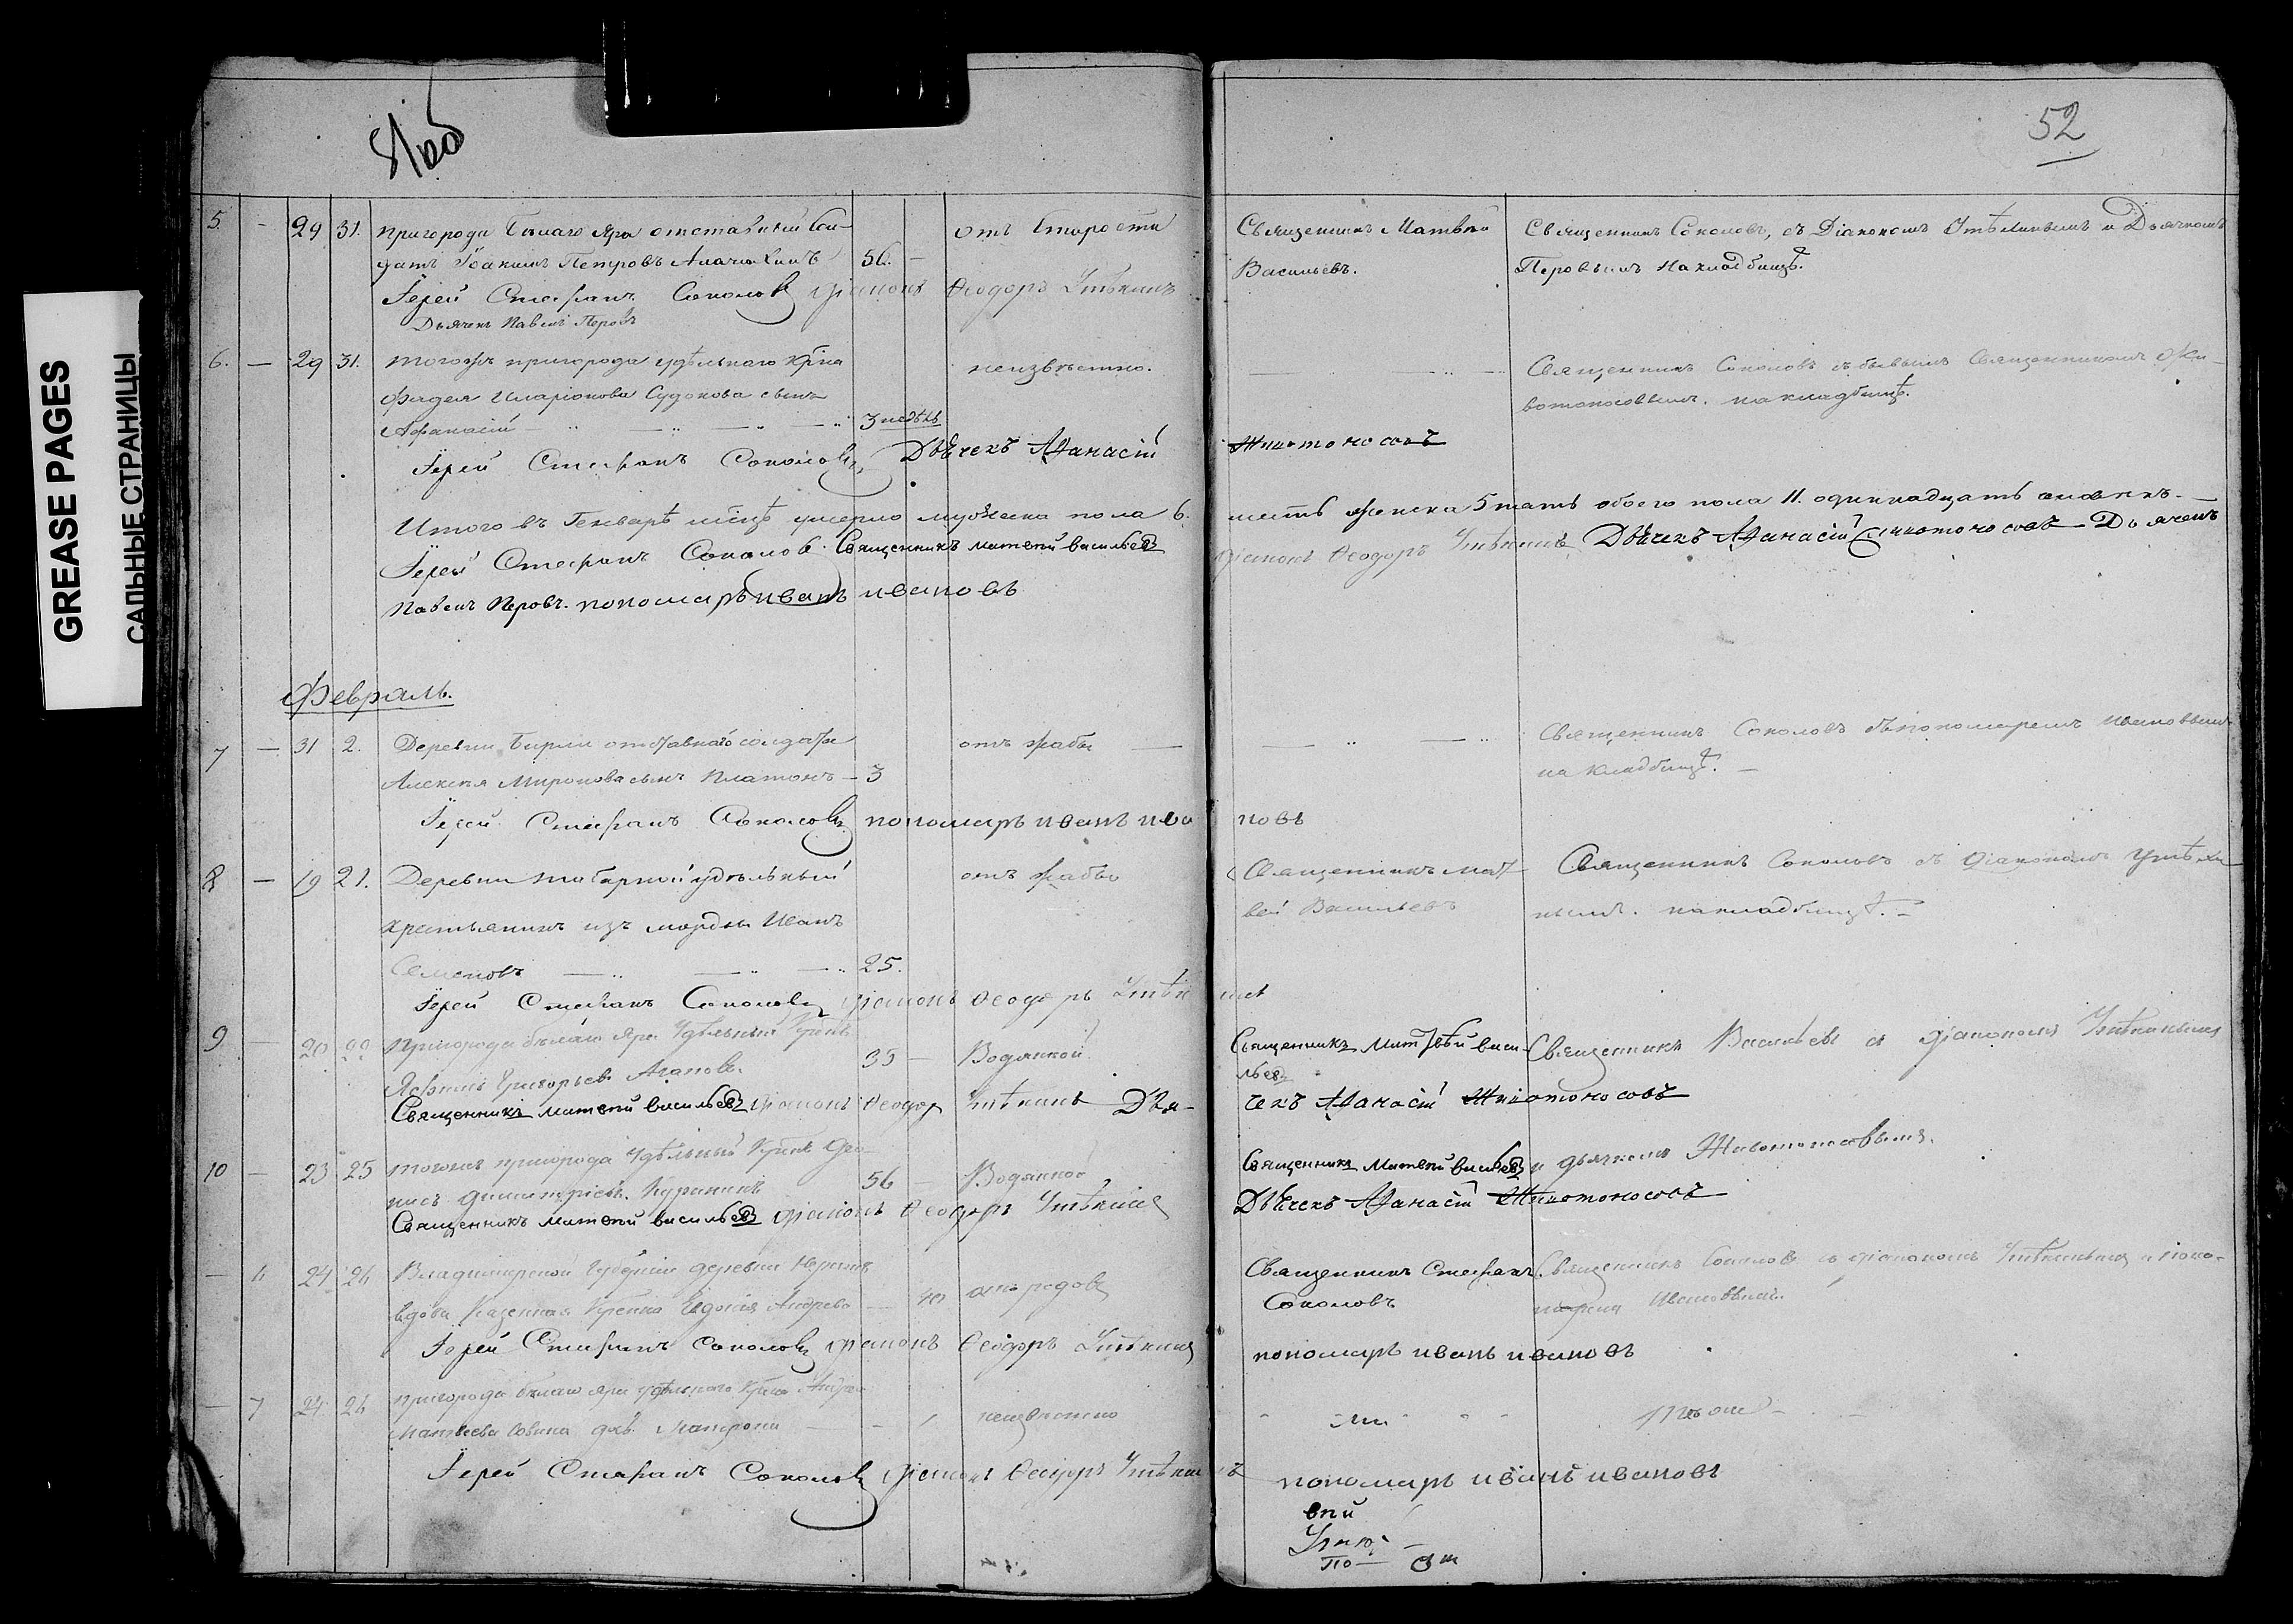 GREASE PAGES
САЛЬНЫЕ СТРАНИЦЫ
51об
52
5. - 29 31. Пригорода Белаго Яра отставный Сол-
датъ Іоакимъ Петровъ 56. - отъ Старости
Священникъ Матвей Васильевъ.
Священникъ Соколовъ, съ Діакономъ Утѣхинымъ и Дьячкомъ
Перовымъ на кладбищѣ.
Іерей Стефанъ Соколовъ Діаконъ Ѳеодоръ Утѣхинъ
Дьячекъ Павелъ Перовъ
6. - 29 31. Тогожъ пригорода удѣльнаго Крѣна
Фадея Иларіонова Судокова сынъ
Аѳанасій 3 недѣль неизвѣстно.
Священникъ Соколовъ съ бывшимъ Священникомъ Жи-
вотоносовымъ. на кладбищѣ.
Іерей Стефанъ Соколовъ Дьячекъ Аѳанасій Животоносовъ
Итого въ Генварѣ мѣсцѣ умерло мужеска пола 6. шесть женска 5 пять обоего пола 11. одиннадцать человѣкъ.
Іерей Стефанъ Соколовъ. Священникъ Матвей Васильевъ Діаконъ Ѳеодоръ Утѣхинъ Дьячекъ Аѳанасій Животоносовъ Дьячекъ
Павелъ Перовъ. пономарь Иванъ Ивановъ
Февраль.
7 - 31 2. Деревни Бирли отставнаго солдата
Алексея Миронова сынъ Платонъ - 3 отъ жабы
Священникъ Соколовъ съ пономаремъ Ивановымъ
на кладбищѣ.
Іерей Стефанъ Соколовъ пономарь Иванъ Ивановъ
8 - 19 21. Деревни удѣльный
крестьянинъ изъ мордвы Иванъ
Семеновъ 25. отъ жабы
Священникъ Мат
вей Васильевъ
Священникъ Соколовъ съ Діакономъ Утѣхи
нымъ. на кладбищѣ.
Іерей Стефанъ Соколовъ Діаконъ Ѳеодоръ Утѣхинъ
9 - 20 22 Пригорода Белаго Яра Удѣльный Крѣнъ
Григорьевъ Агаповъ. 35 - Водяной
Священникъ Матвѣй Васи-
льевъ
Священникъ Васильевъ съ Діакономъ Утѣхинымъ
Священникъ Матвей Васильевъ Діаконъ Ѳеодоръ Утѣхинъ Дья-
чекъ Аѳанасій Животоносовъ
10 - 23 25 Тогожъ пригорода Удѣльный Крѣнъ
Димитріевъ. 56 - Водяной
Священникъ Матвей Васильевъ и дьячкомъ Животоносовымъ.
Священникъ Матвей Васильевъ Діаконъ Ѳеодоръ Утѣхинъ
Дьячекъ Аѳанасій Животоносовъ
- 6 24 26 Владимирской Губерніи деревни
вдова Казенная Андреева - 40 отъ родовъ
Священникъ Стефанъ
Соколовъ
Священникъ Соколовъ съ діакономъ Утѣхинымъ и поно-
маремъ Ивановымъ.
Іерей Стефанъ Соколовъ Діаконъ Ѳеодоръ Утѣхинъ
пономарь Иванъ Ивановъ
- 7 24 26 Пригорода Белаго Яра удѣльнаго Крѣна Андрея
Матвеева дочь Матрона неизвѣстно
Іерей Стефанъ Соколовъ Діаконъ Ѳеодоръ Утѣхинъ
пономарь Иванъ Ивановъ
вей